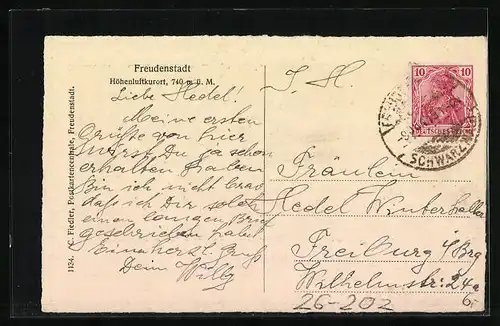 Freudenstadt
Höhenluftkurort, 740 m ü. M.
Liebe Hedel!
Meine ersten
Grüsse von hier
wirst Du ja schon
erhalten haben
Bin ich nicht brav
dass ich Dir solch
einen langen Brief
geschrieben habe
Einen herzl. Gruß
Dein Willy
1134. C. Fiedler, Postkartenzentrale, Freudenstadt.
10 10
DEUTSCHES REICH
SCHWARZW
Fräulein
Hedel Winterhalter
Freiburg i/Brg
Wilhelmstr: 24a
26-202